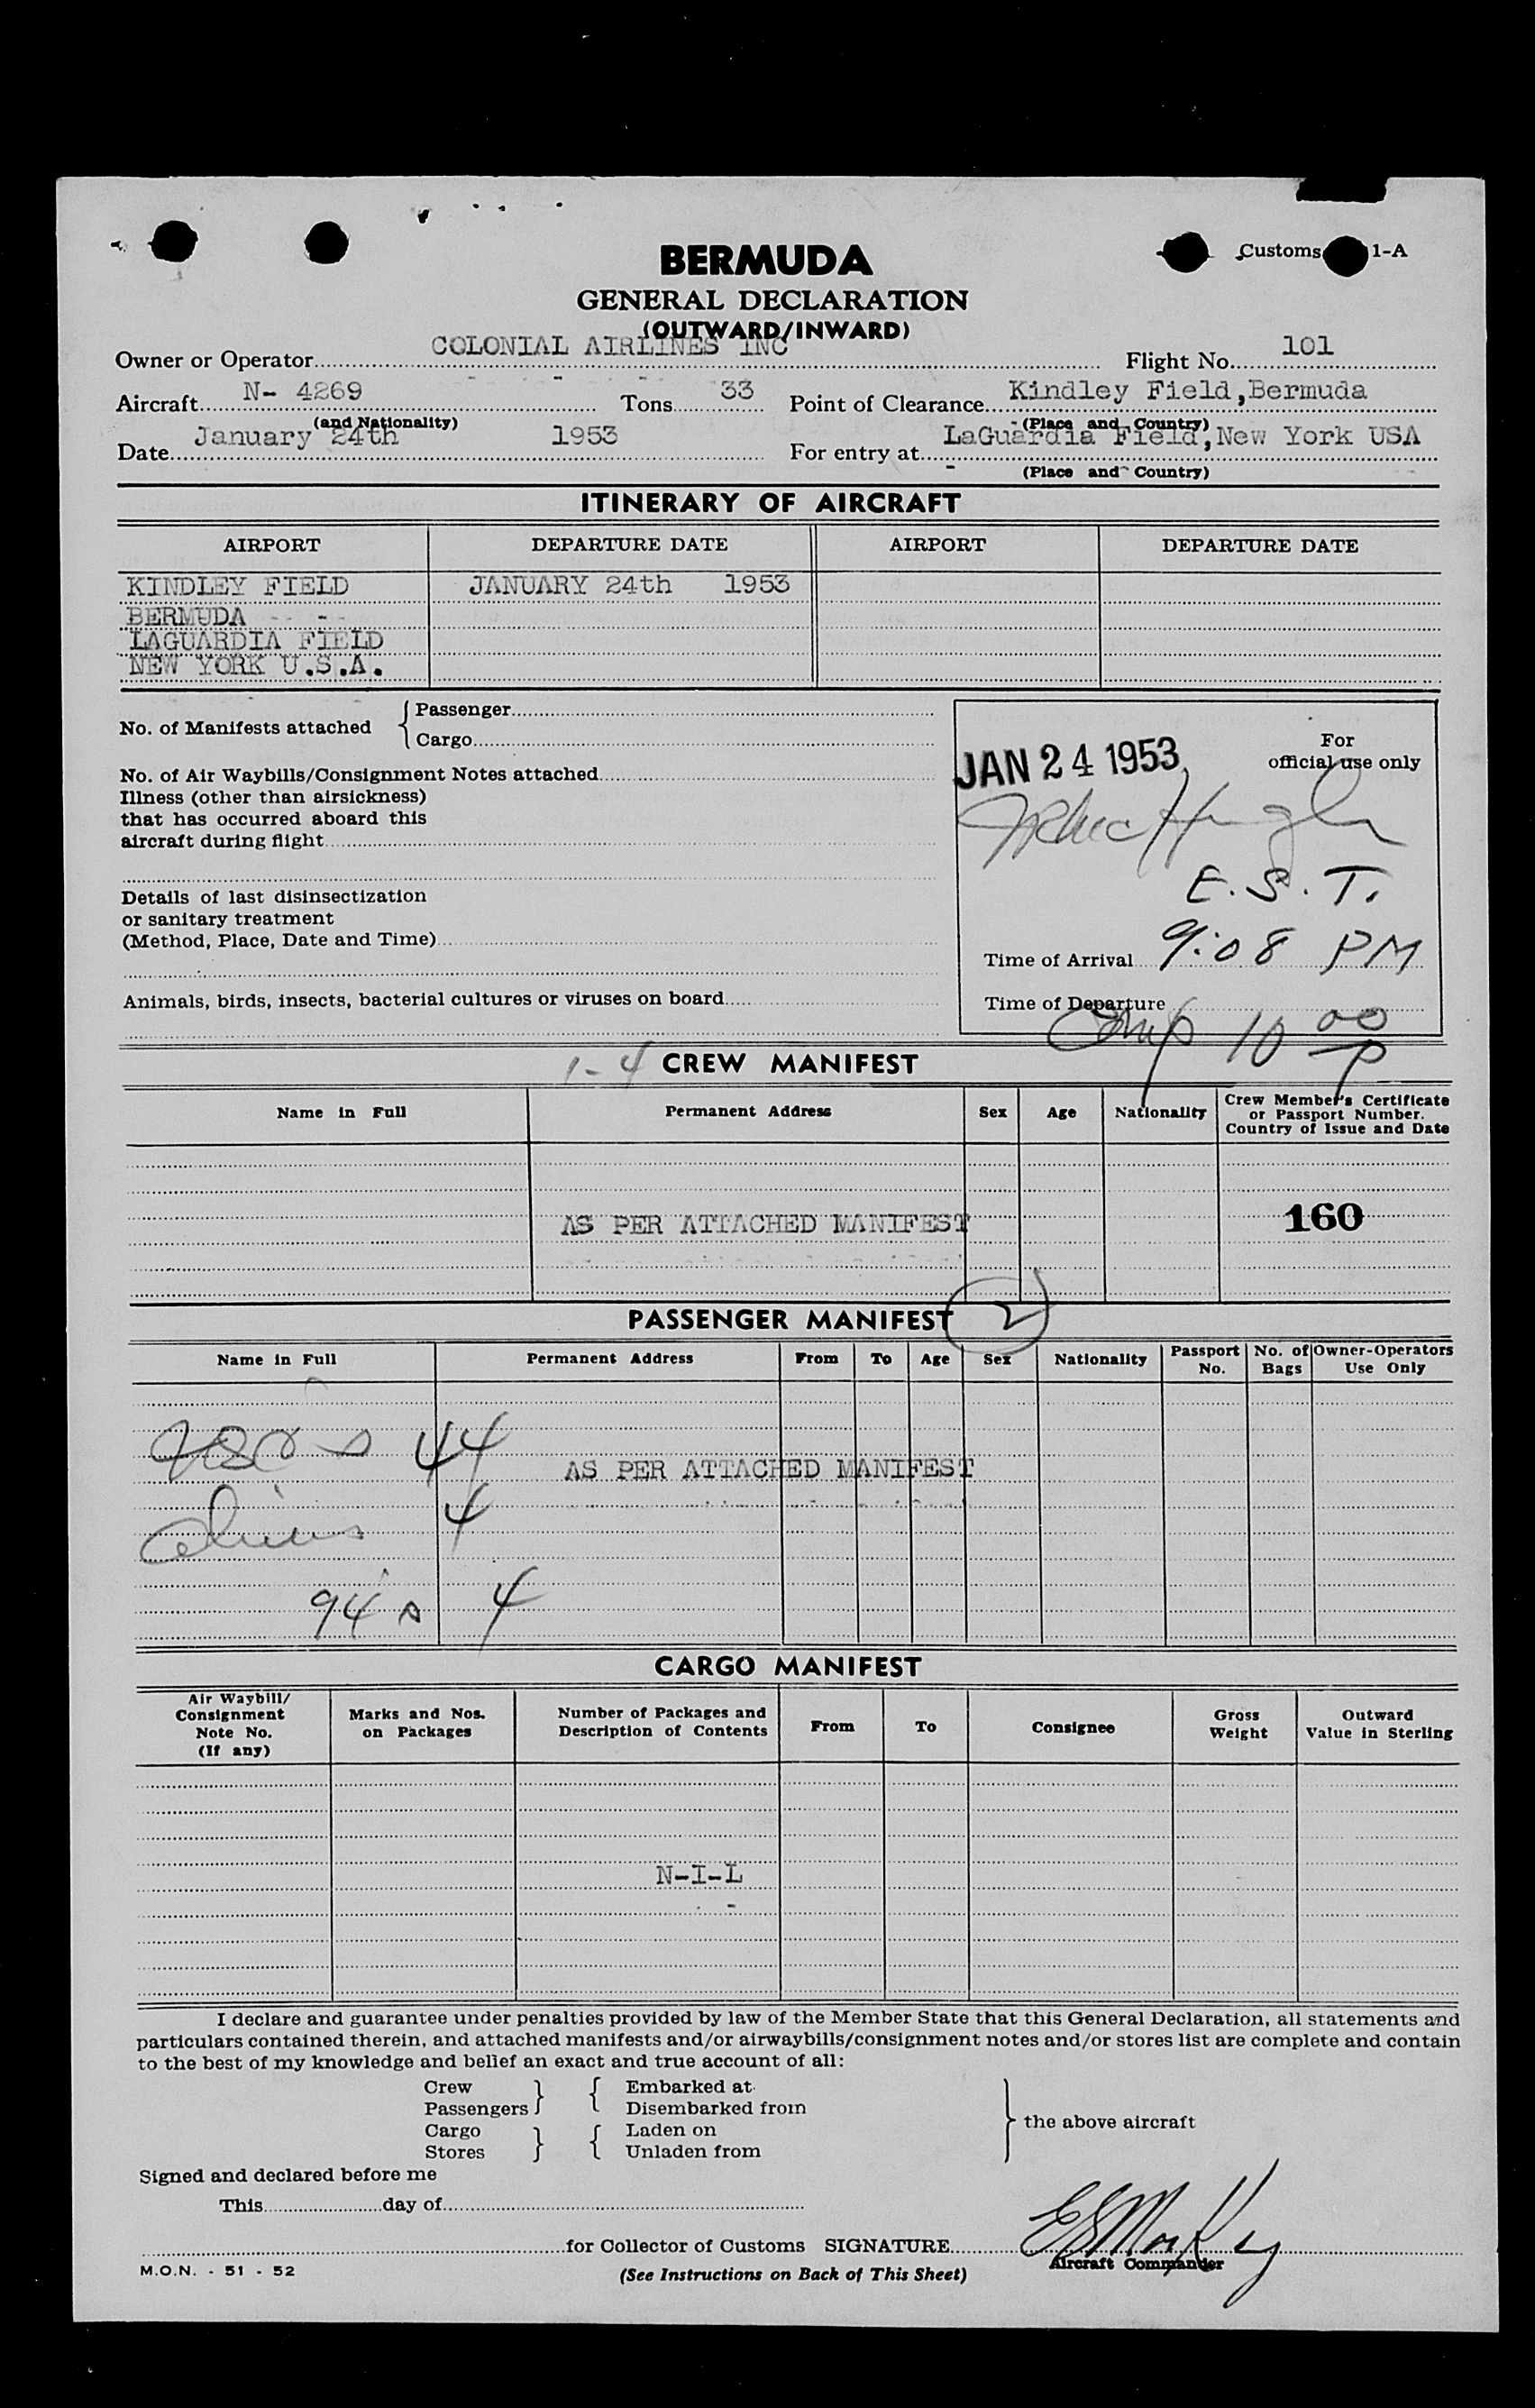 Customs 1-A
BERMUDA
GENERAL DECLARATION
(OUTWARD/INWARD)
Owner or Operator COLONIAL AIRLINES INC Flight No. 101
Aircraft N- 4269 Tons 33 Point of Clearance Kindley Field,Bermuda
(and Nationality) (Place and Country)
Date January 24th 1953 For entry at LaGuardia Field,New York USA
(Place and Country)
ITINERARY OF AIRCRAFT
AIRPORT DEPARTURE DATE AIRPORT DEPARTURE DATE
KINDLEY FIELD JANUARY 24th 1953
BERMUDA
LAGUARDIA FIELD
NEW YORK U.S.A.
No. of Manifests attached { Passenger
Cargo
No. of Air Waybills/Consignment Notes attached
Illness (other than airsickness)
that has occurred aboard this
aircraft during flight
Details of last disinsectization
or sanitary treatment
(Method, Place, Date and Time)
Animals, birds, insects, bacterial cultures or viruses on board
For
official use only
JAN 24 1953
E.S.T.
Time of Arrival 9:08 PM
Time of Departure
Comp 10 00 P
1-4 CREW MANIFEST
Name in Full Permanent Address Sex Age Nationality Crew Member's Certificate
or Passport Number.
Country of Issue and Date
AS PER ATTACHED MANIFEST 160
PASSENGER MANIFEST 2
Name in Full Permanent Address From To Age Sex Nationality Passport No. No. of Bags Owner-Operators Use Only
44
AS PER ATTACHED MANIFEST
4
94 4
CARGO MANIFEST
Air Waybill/ Consignment Note No. (If any) Marks and Nos. on Packages Number of Packages and Description of Contents From To Consignee Gross Weight Outward Value in Sterling
N-I-L
I declare and guarantee under penalties provided by law of the Member State that this General Declaration, all statements and
particulars contained therein, and attached manifests and/or airwaybills/consignment notes and/or stores list are complete and contain
to the best of my knowledge and belief an exact and true account of all:
Crew } { Embarked at
Passengers Disembarked from
} the above aircraft
Cargo } { Laden on
Stores Unladen from
Signed and declared before me
This day of
for Collector of Customs SIGNATURE
Aircraft Commander
M.O.N. - 51 - 52 (See Instructions on Back of This Sheet)